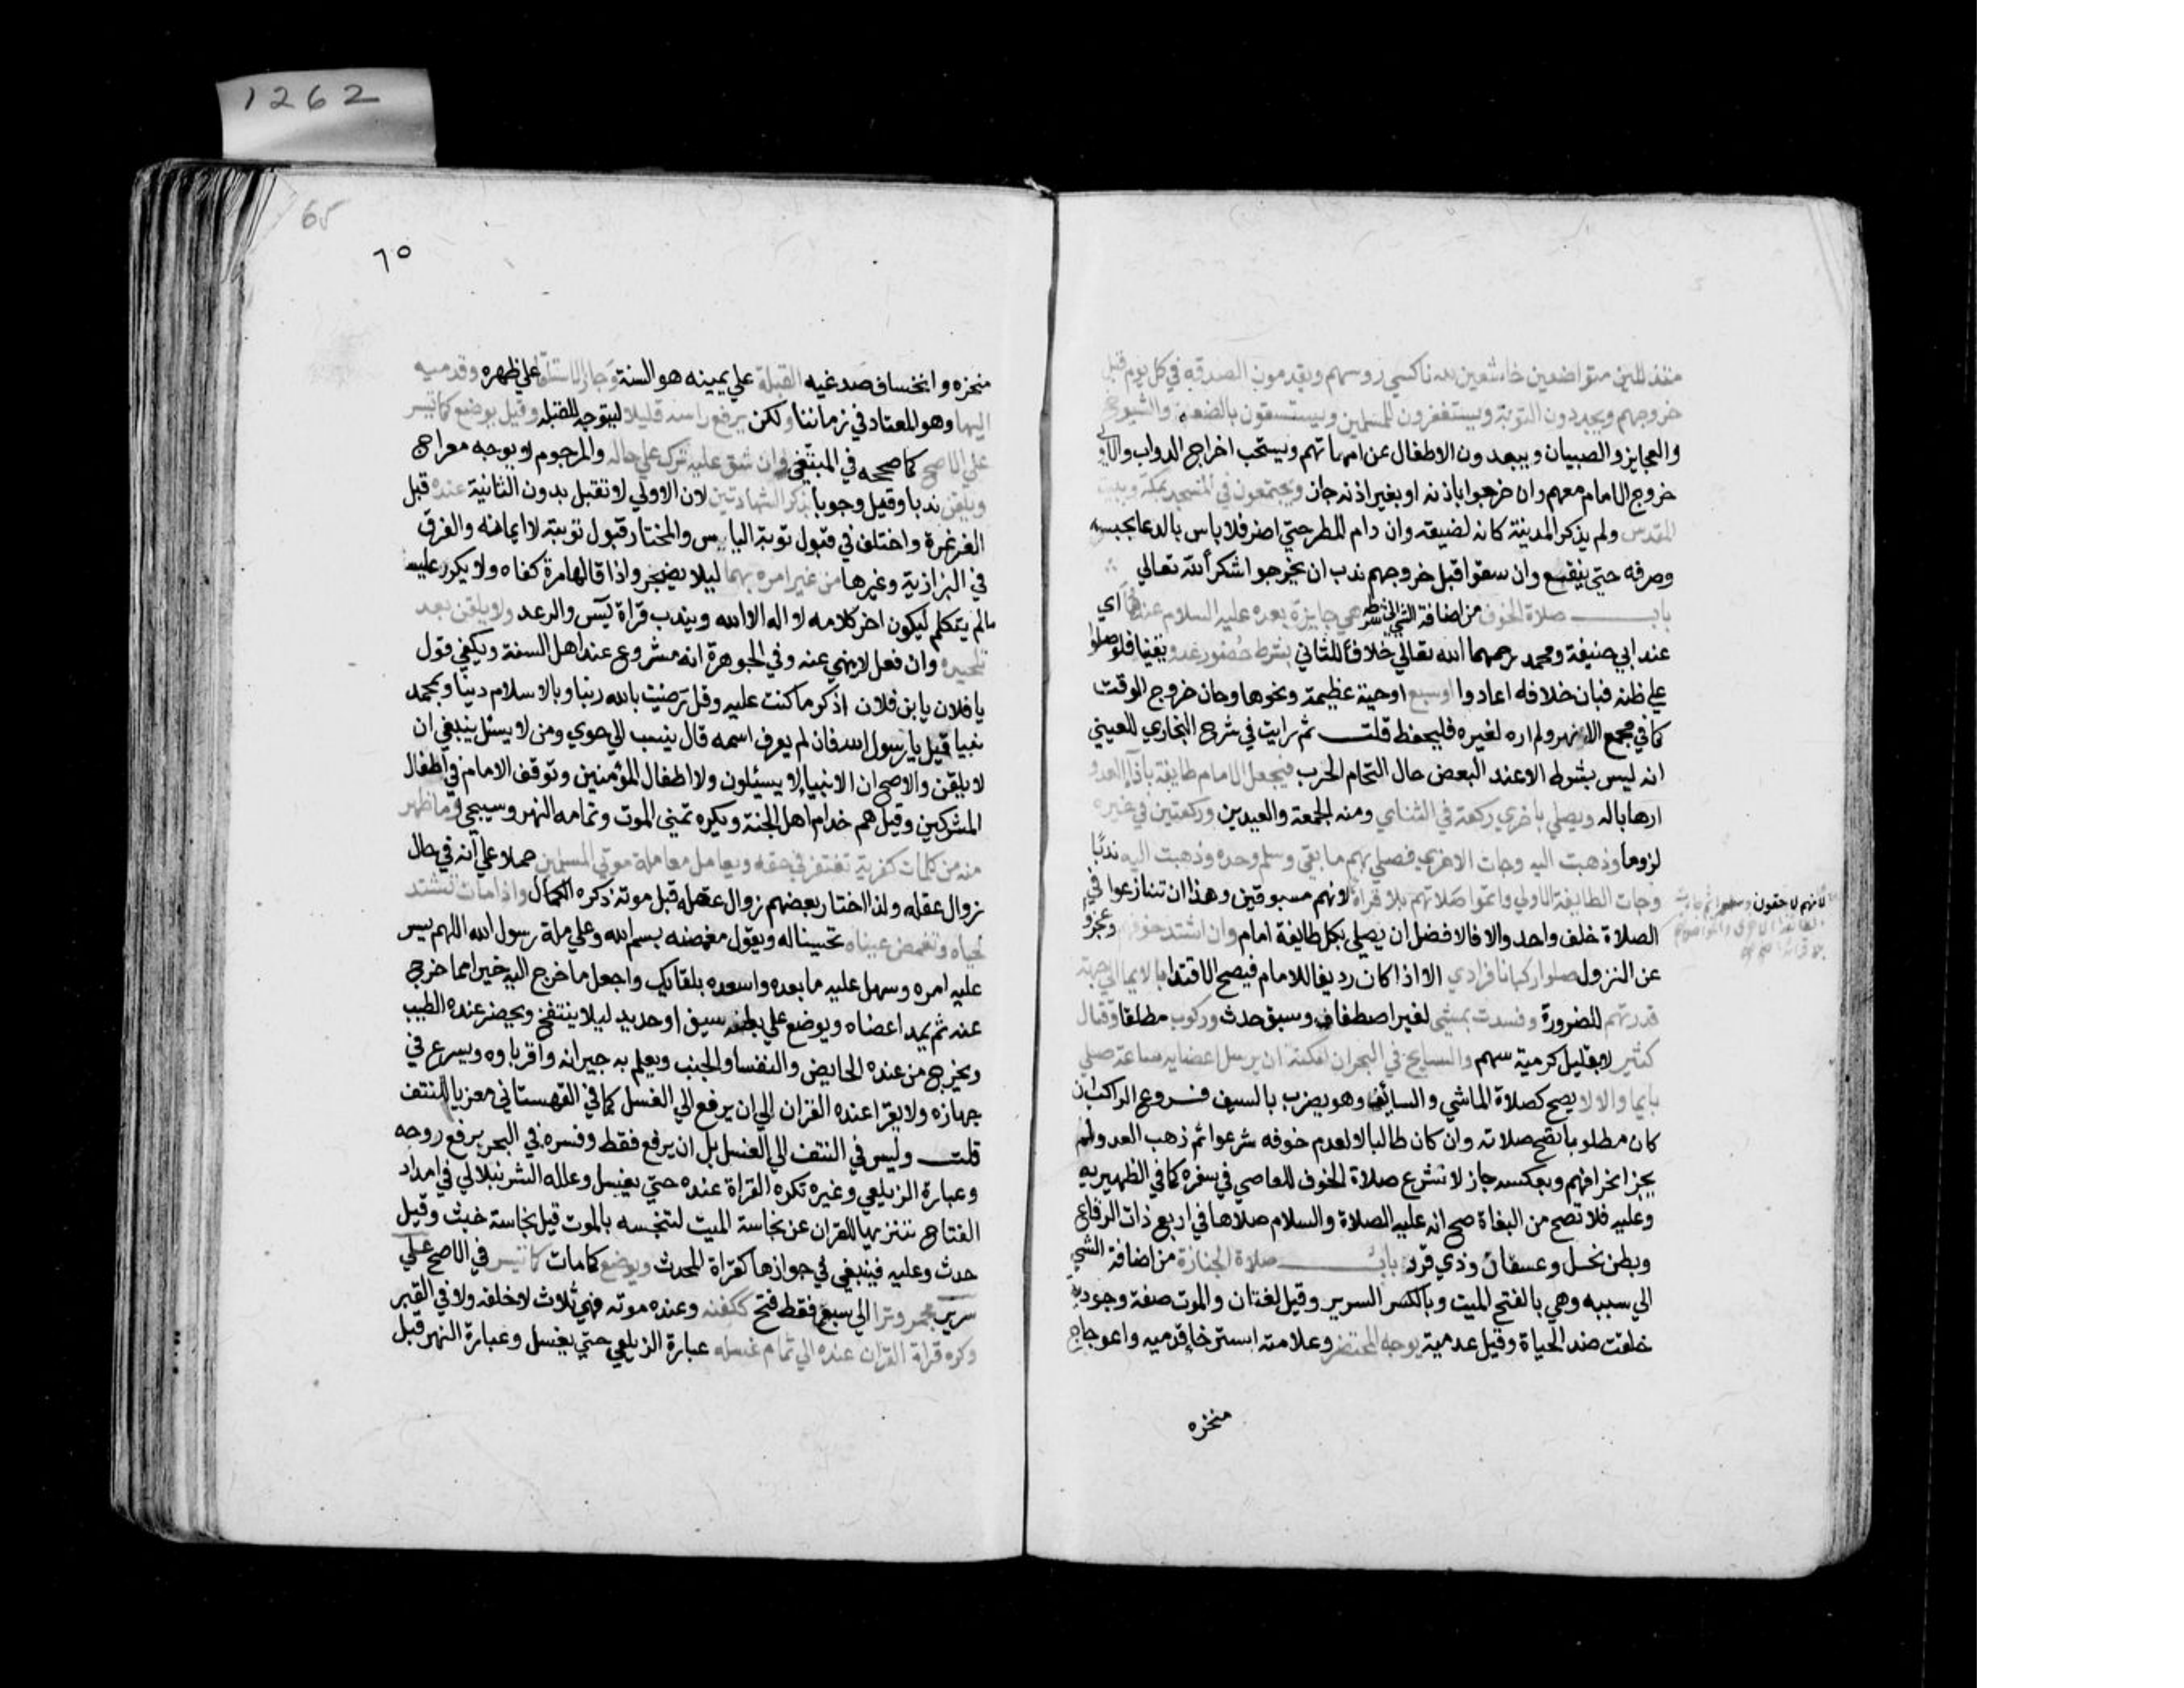 1262
متذللين متواضعين خاشعين لله ناكسي روسهم ويقدمون الصدقة في كل يوم قبل
خروجهم ويجددون التوبة ويستغفرون للمسلمين ويستسقون بالضعفة والشيوخ
والعجايز والصبيان ويبعدون الاطفال عن امهاتهم ويستحب اخراج الدواب والاولي
خروج الامام معهم وان خرجوا باذنه او بغير اذنه جاز ويجتمعون في المسجد بمكة وبيت
المقدس ولم يذكر المدينة كانه لضيقه وان دام المطر حتي اضر فلا باس بالدعا بحبسه
وصرفه حتي ينفع وان سقوا قبل خروجهم ندب ان يخرجوا شكرا لله تعالي
باب صلاة الخوف من اضافة الشي لشرطه هي جايزة بعده عليه السلام عندهما اي
عند ابي حنيفة ومحمد رحمهما الله تعالي خلافا للثاني بشرط حضور عدو يقينا فلو صلوا
علي ظنه فبان خلافه اعادوا او سبع او حية عظيمة ونحوها وحان خروج الوقت
كما في مجمع الانهر ولم اره لغيره فليحفظ قلت ثم رايت في شرح البخاري للعيني
انه ليس بشرط الا عند البعض حال التحام الحرب فيجعل الامام طايفة بازا العدو
ارهابا له ويصلي باخري ركعة في الثنائي ومنه الجمعة والعيدين وركعتين في غيره
لزوما وذهبت اليه وجات الاخري فصلي بهم ما بقي وسلم وحده وذهبت اليه ندبا
وجات الطايفة الاولي واتموا صلاتهم بلا قراة لانهم مسبوقين وهذا ان تنازعوا في
لانهم لاحقون
الصلاة خلف واحد والا فالافضل ان يصلي بكل طايفة امام وان اشتد خوفهم وعجزوا
عن النزول صلوا ركبانا فرادي الا اذا كان رديفا للامام فيصح الاقتدا بالايما الي جهة
قدرتهم للضرورة وفسدت بمشي لغير اصطفاف وسبق حدث وركوب مطلقا وقتال
كثير لا بقليل كرمية سهم والسابح في البحر ان امكنه ان يرسل اعضايه ساعة صلي
بايما والا لا يصح كصلاة الماشي والسائف وهو يضرب بالسيف فروع الراكب ان
كان مطلوبا تصح صلاته وان كان طالبا لا لعدم خوفه شرعوا ثم ذهب العدو لم
يجز انحرافهم وبعكسه جاز لا تشرع صلاة الخوف للعاصي في سفره كما في الظهيريه
وعليه فلا تصح من البغاة صح انه عليه الصلاة والسلام صلاها في اربع ذات الرقاع
وبطن نخل وعسفان وذي قرد باب صلاة الجنازة من اضافة الشي
الي سببه وهي بالفتح الميت وبالكسر السرير وقيل لغتان والموت صفة وجودية
خلقت ضد الحياة وقيل عدمية يوجه المحتضر وعلامته استرخا قدميه واعوجاج
منخره
65
٦٥
منخره وانخساف صدغيه القبلة علي يمينه هو السنة وجاز الاستلقا علي ظهره وقدميه
اليها وهو المعتاد في زماننا ولكن يرفع راسه قليلا ليتوجه للقبله وقيل يوضع كما تيسر
علي الاصح كما صححه في المبتغي وان شق عليه ترك علي حاله والمرجوم لا يوجه معراج
ويلقن ندبا وقيل وجوبا بذكر الشهادتين لان الاولي لا تقبل بدون الثانية عنده قبل
الغرغرة واختلف في قبول توبة الياس والمختار قبول توبته لا ايمانه والفرق
في البزازية وغيرها من غير امره بهما ليلا يضجر واذا قالها مرة كفاه ولا يكرر عليه
مالم يتكلم ليكون اخر كلامه لا اله الا الله ويندب قراة يٓس والرعد ولا يلقن بعد
تلحيده وان فعل لا ينهي عنه وفي الجوهرة انه مشروع عند اهل السنة ويكفي قول
يا فلان يا بن فلان اذكر ما كنت عليه وقل رضيت بالله ربنا وبالاسلام دينا وبمحمد
نبيا قيل يا رسول الله فان لم يعرف اسمه قال ينسب الي حوي ومن لا يسئل ينبغي ان
لا يلقن والاصح ان الانبيا لا يسيئلون ولا اطفال المؤمنين وتوقف الامام في اطفال
المشركين وقيل هم خدام اهل الجنة ويكره تمني الموت وتمامه النهر وسيجي وما ظهر
منه من كلمات كفرية تغتفر في حقه ويعامل معاملة موتي المسلمين حملا علي انه في حال
زوال عقله ولذا اختار بعضهم زوال عقله قبل موته ذكره الكمال واذا مات تشد
لحياه وتغمض عيناه تحسينا له ويقول مغمضه بسم الله وعلي ملة رسول الله اللهم يسر
عليه امره وسهل عليه ما بعده واسعده بلقايك واجعل ما خرج اليه خيرا مما خرج
عنه ثم يمد اعضاه ويوضع علي بطنه سيف او حديد ليلا ينتفخ ويحضر عنده الطيب
ويخرج من عنده الحايض والنفسا والجنب ويعلم به جيرانه واقرباوه ويسرع في
جهازه ولا يقرا عنده القران الي ان يرفع الي الغسل كما في القهستاني معزيا للنتف
قلت وليس في النتف الي الغسل بل ان يرفع فقط وفسره في البحر برفع روحه
وعبارة الزيلعي وغيره تكره القراة عنده حتي يغسل وعلله الشرنبلالي في امداد
الفتاح تنزيها للقران عن نجاسة الميت لتنجسه بالموت قيل نجاسة خبث وقيل
حدث وعليه فينبغي في جوازها كقراة المحدث ويوضع كما مات كما تيسر في الاصح علي
سرير مجمر وترا الي سبع فقط فتح ككفنه وعنده موته فهي ثلاث لا خلفه ولا في القبر
وكره قراة القران عنده الي تمام غسله عبارة الزيلعي حتي يغسل وعبارة النهر قبل